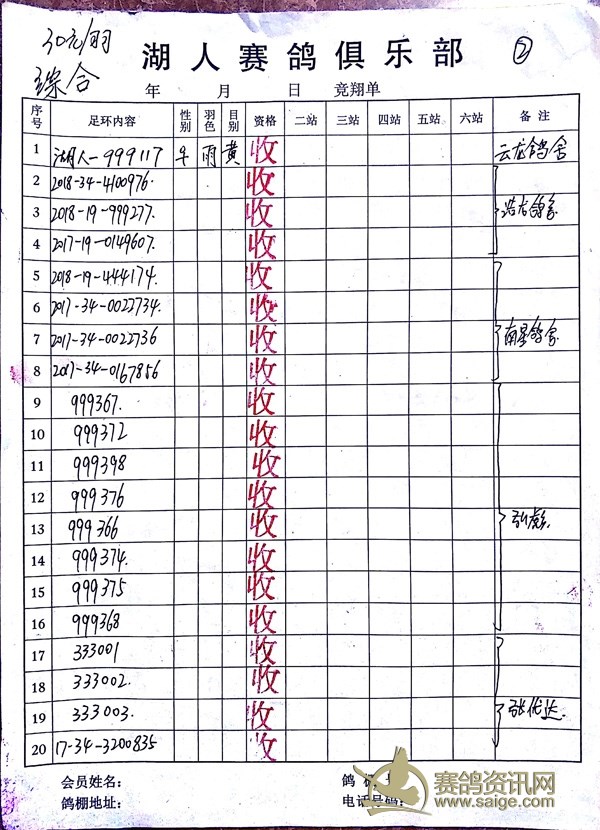 30元/羽
综合
湖人赛鸽俱乐部
②
年 月 日 竞翔单
序号 足环内容 性别 羽色 目别 资格 二站 三站 四站 五站 六站 备注
1 湖人-999117 雨 黄 收 云龙鸽舍
2 2018-34-4100976. 收
3 2018-19-999277. 收 鸽舍
4 2017-19-0149607. 收
5 2018-19-444174. 收
6 2017-34-0022734. 收
7 2017-34-0022736 收 南星鸽舍
8 2017-34-0167856 收
9 999367. 收
10 999372 收
11 999398 收
12 999376 收
13 999366 收
14 999374. 收
15 999375 收
16 999368 收
17 333001 收
18 333002. 收
19 333003. 收 张优达
20 17-34-3200835 收
会员姓名: 鸽
鸽棚地址: 电话号码:
赛鸽资讯网
www.saige.com